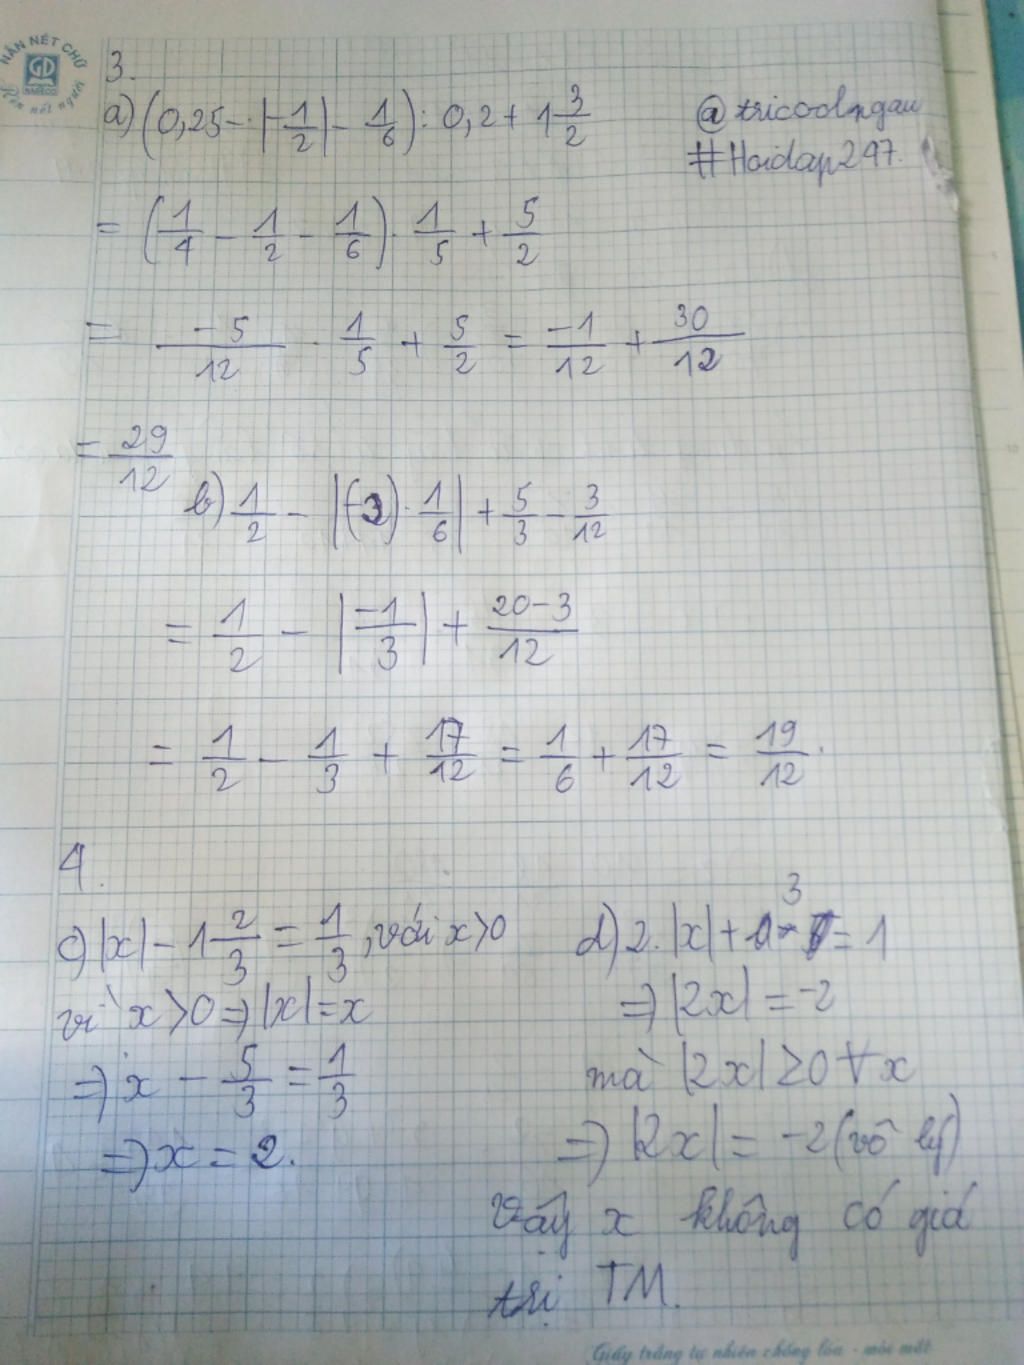 NẮN NÉT CHỮ
GD
Rèn nết người
3.
a) (0,25 - |-1/2| - 1/6) : 0,2 + 1 3/2
@tricodngau
#Hoidap247.
= (1/4 - 1/2 - 1/6) . 1/5 + 5/2
= -5/12 . 1/5 + 5/2 = -1/12 + 30/12
= 29/12
b) 1/2 - |(-3) . 1/6| + 5/3 - 3/12
= 1/2 - |-1/3| + 20-3/12
= 1/2 - 1/3 + 17/12 = 1/6 + 17/12 = 19/12.
4.
c) |x| - 1 2/3 = 1/3, với x>0
vì x>0 => |x| = x
=> x - 5/3 = 1/3
=> x = 2.
d) 2.|x| + 3 = 1
=> |2x| = -2
mà |2x| ≥ 0 ∀x
=> |2x| = -2 (vô lý)
Vậy x không có giá
trị TM.
Giấy trắng tự nhiên chống lóa - mỏi mắt